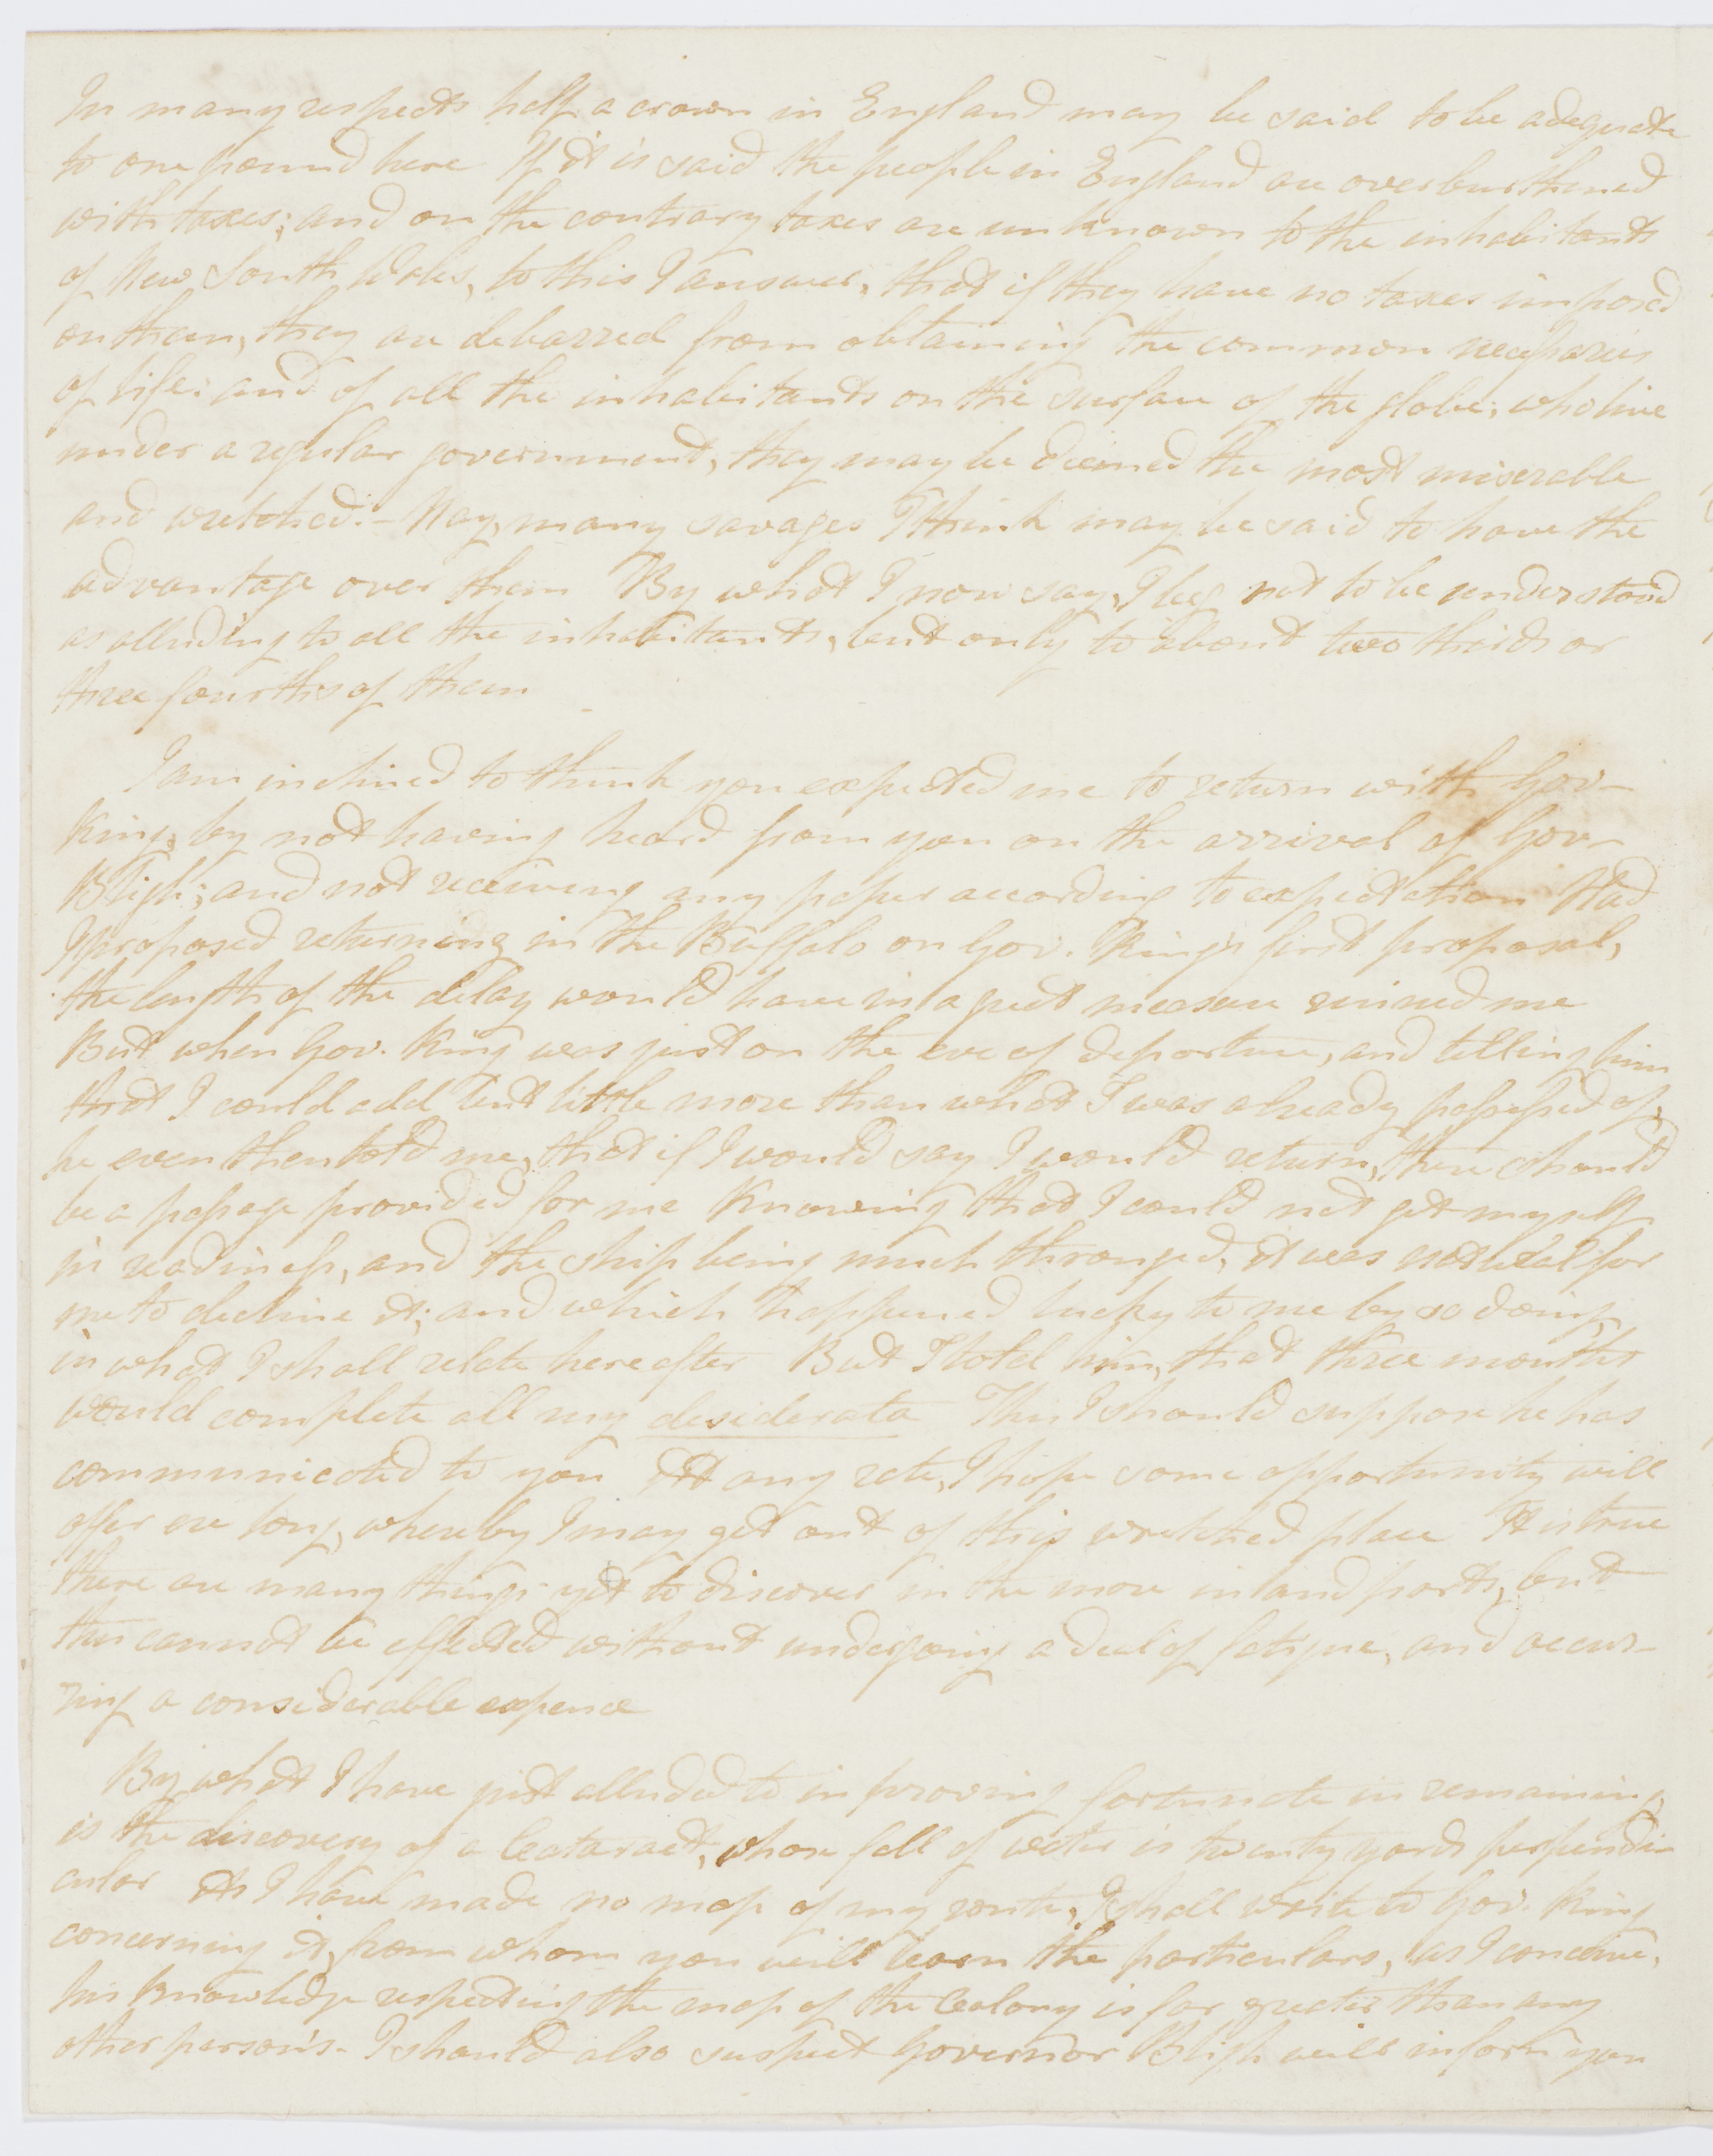 In many respects half a crown in England may be said to be adequate
to one pound here If it is said the people in England are overburthened
with taxes; and on the contrary taxes are unknown to the inhabitants
of New South Wales, to this I answer, that if they have no taxes imposed
on them, they are debarred from obtaining the common necessaries
of life: and of all the inhabitants on the surface of the globe, who live
under a regular government, they may be deemed the most miserable
and wretched:- Nay, many savages I think may be said to have the
advantage over them By what I now say, I beg not to be understood
as alluding to all the inhabitants, but only to about two thirds or
three fourths of them
I am inclined to think you expected me to return with Gov-
King, by not having heard from you on the arrival of Gov-
Bligh; and not receiving any paper according to expectation Had
I proposed returning in the Buffalo on Gov. King's first proposal,
the length of the delay would have in a great measure ruined me
But when Gov. King was just on the eve of departure, and telling him
that I could add but little more than what I was already possessed of,
he even then told me, that if I would say I would return, there should
be a passage provided for me Knowing that I could not get myself
in readiness, and the ship being much thronged, it was natural for
me to decline it; and which happened lucky to me by so doing,
in what I shall relate hereafter But I told him, that three months
would complete all my desiderata This I should suppose he has
communicated to you At any rate, I hope some opportunity will
offer ere long, whereby I may get out of this wretched place It is true
there are many things yet to discover in the more inland parts, but
this cannot be effected without undergoing a deal of fatigue, and occur-
ring a considerable expence
By what I have just alluded to in proving fortunate in remaining,
is the discovery of a Cataract, whose fall of water is twenty yards perpendi-
cular As I have made no map of my route, I shall write to Gov. King
concerning it, from whom you will learn the particulars, as I conceive,
his knowledge respecting the map of the Colony is far greater than any
other person's- I should also suspect Governor Bligh will inform you